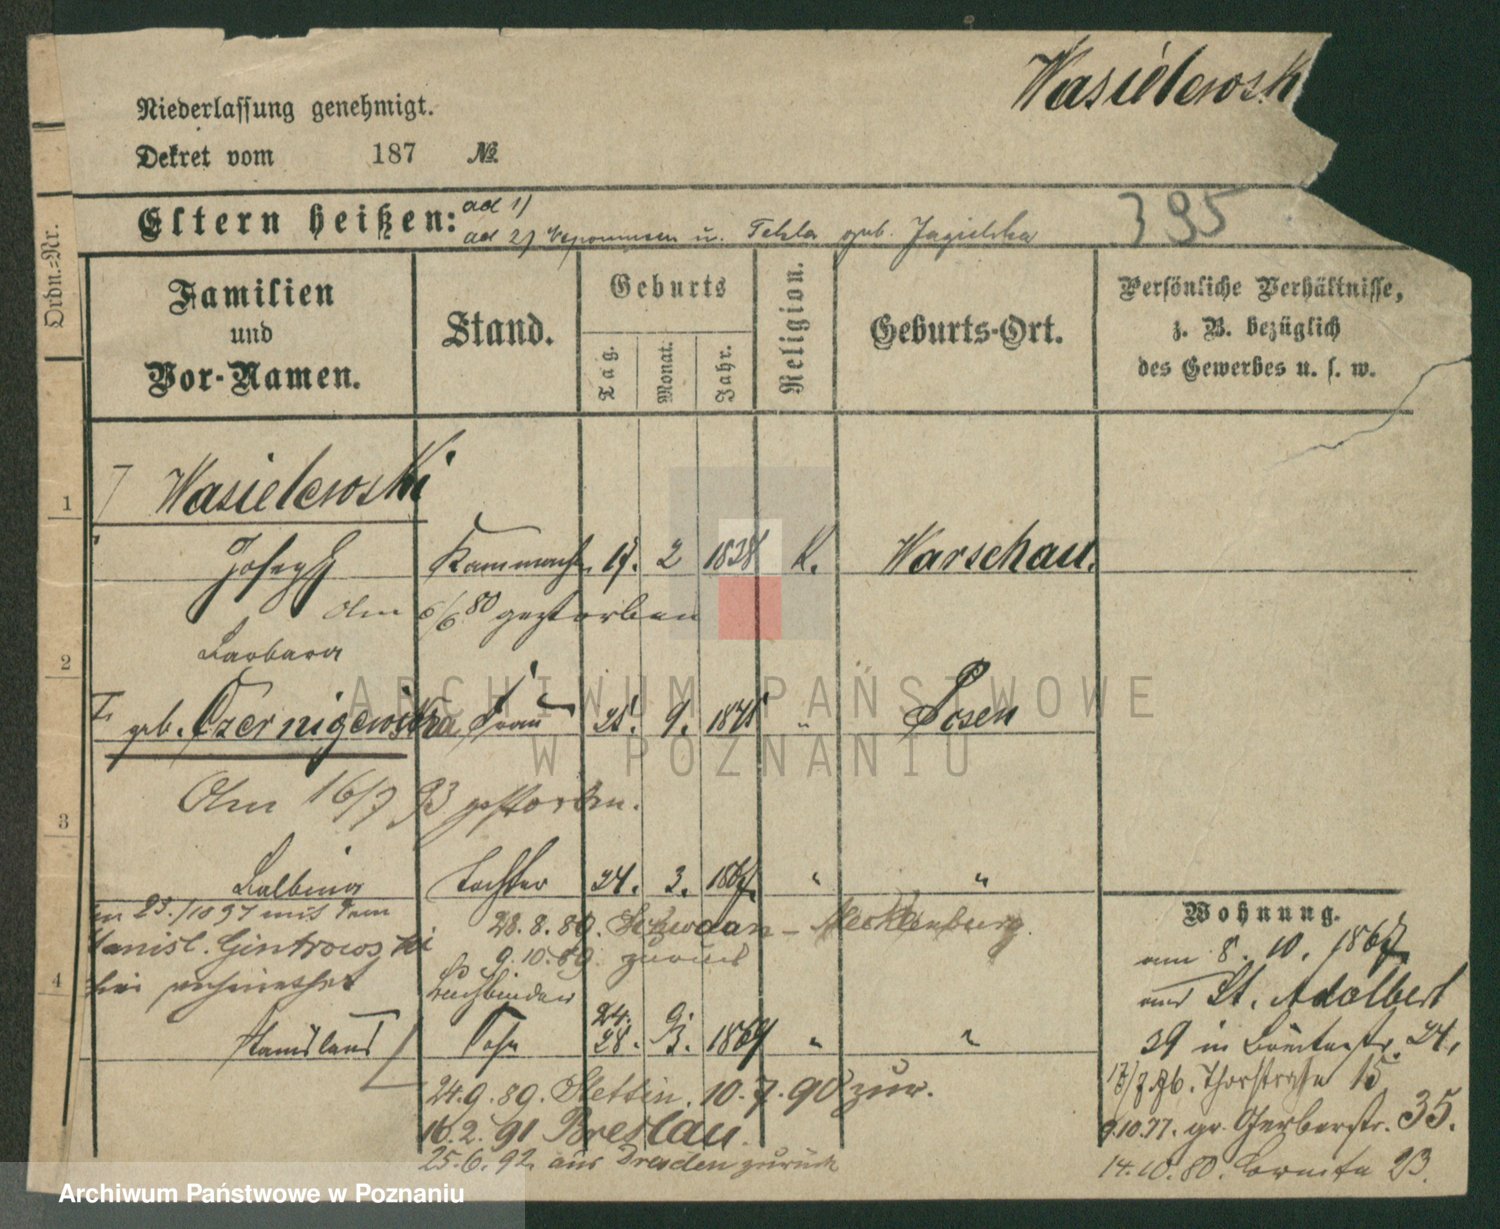 Wasielewsk
Niederlassung genehmigt.
Dekret vom 187 No.
Eltern heißen:
ad 1)
ad 2) Nepomucen u. Tekla geb. Jagielska
395
Ordn.-Nr.
Familien
und
Vor-Namen.
Stand.
Geburts
Tag.
Monat.
Jahr.
Religion.
Geburts-Ort.
Persönliche Verhältnisse,
z. B. bezüglich
des Gewerbes u. s. w.
1
Wasielewski
Joseph Kammmacher 2 K. Warschau.
Am 6/6 80 gestorben
2
Barbara
geb. Frau 9. " Posen
ARCHIWUM PAŃSTWOWE
W POZNANIU
Am 16/7 93 gestorben.
3
Balbina Tochter 24. 3. 1867. " "
mit dem
28.8.89. - Mecklenburg.
Stanisl. Gintrowski
9.10.89 zurück
4
Buchbinder
24. 9.
Stanislaus Sohn 28. 3. 1869 " "
24.9.89. Stettin. 10.7.90 zur.
16.2.91 Breslau.
25.6.92. aus Dresden zurück
Wohnung.
am 8. 10. 1867
aus St. Adalbert
39 in 24,
Thorstraße 15
9.10.77. gr. Gerberstr. 35.
14.10.80. 23.
Archiwum Państwowe w Poznaniu